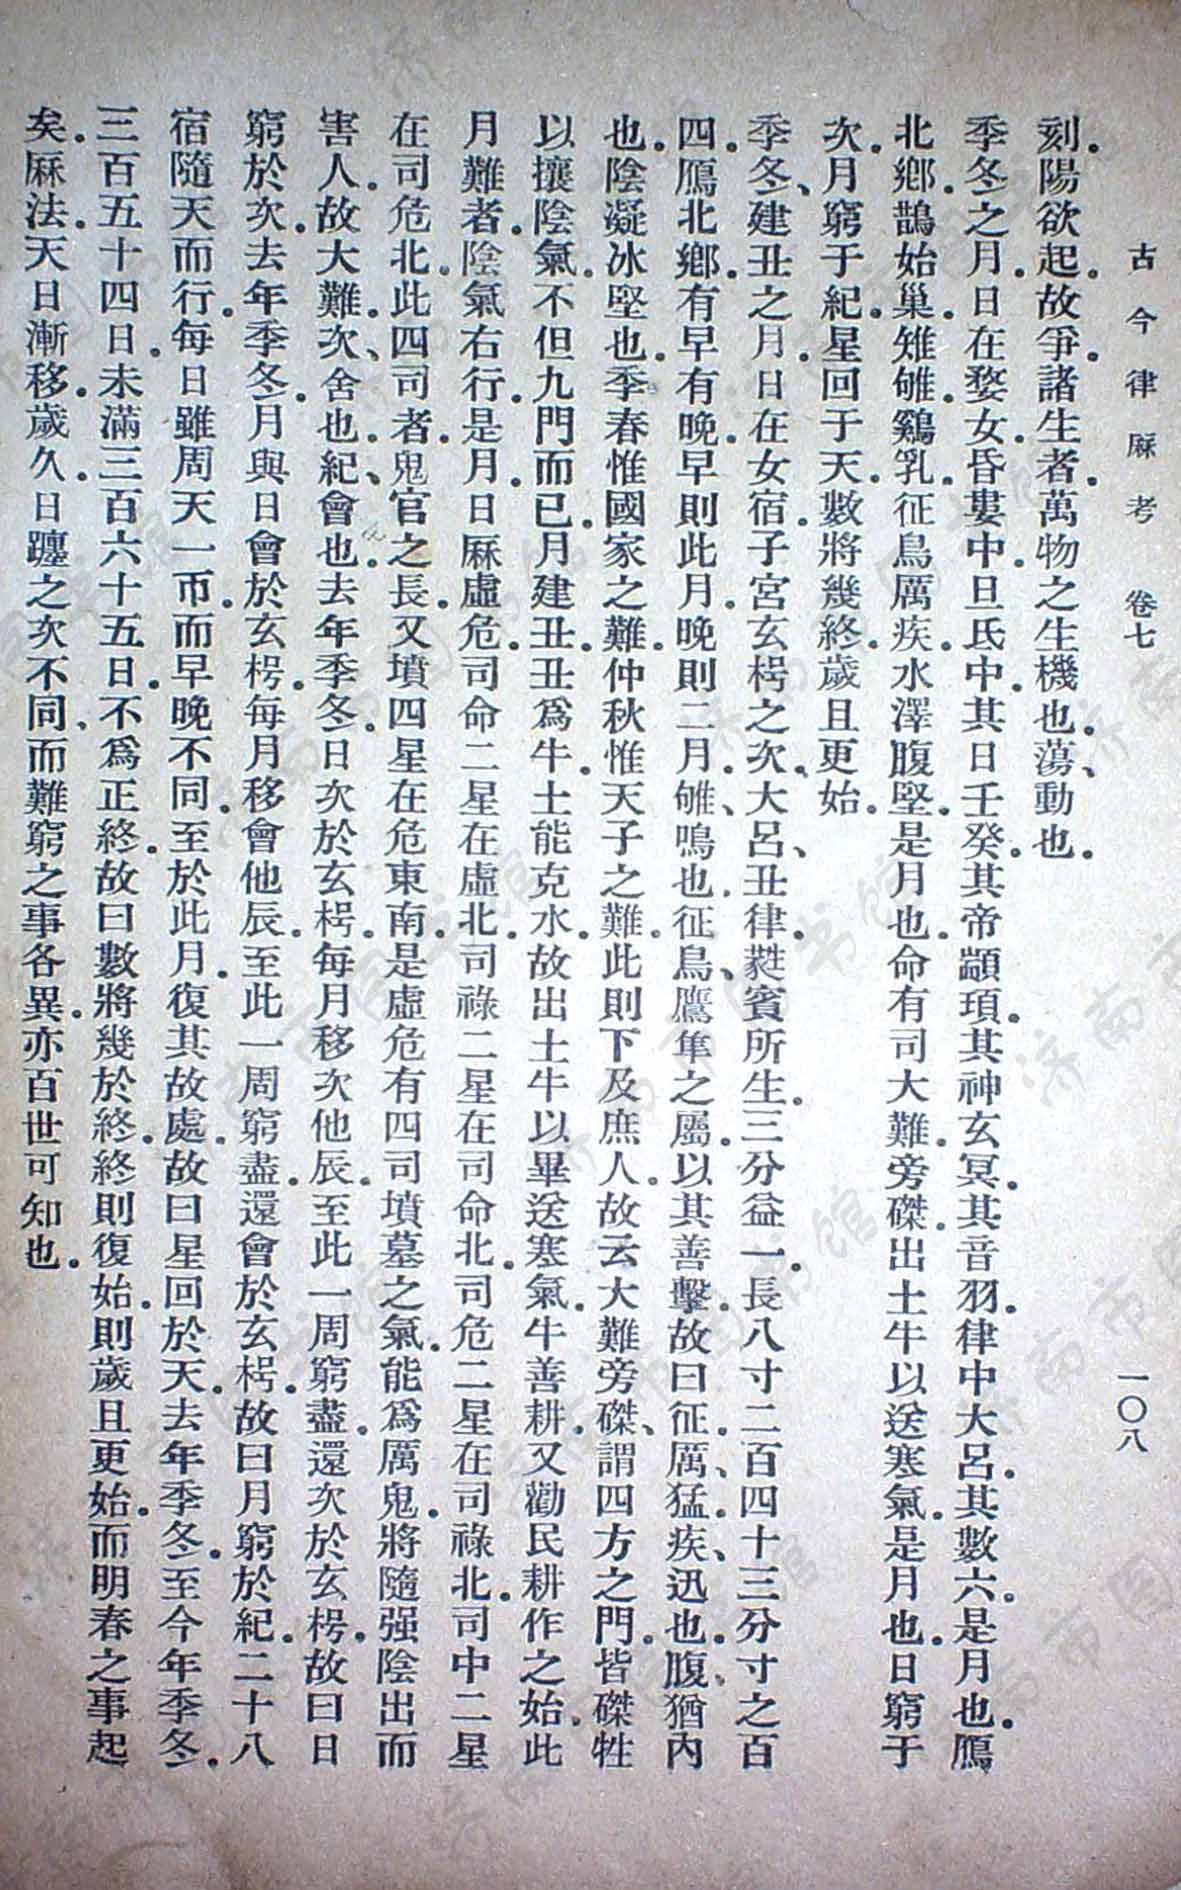 古今律厤考　卷七　一〇八
刻。陽欲起。故爭。諸生者。萬物之生機也。蕩、動也。
季冬之月。日在婺女。昏婁中。旦氐中。其日壬癸。其帝顓頊。其神玄冥。其音羽。律中大呂。其數六。是月也。鴈
北鄉。鵲始巢。雉雊。鷄乳。征鳥厲疾。水澤腹堅。是月也。命有司大難。旁磔。出土牛以送寒氣。是月也。日窮于
次。月窮于紀。星回于天。數將幾終。歲且更始。
季冬、建丑之月。日在女宿。子宮玄枵之次。大呂、丑律。蕤賓所生。三分益一。長八寸二百四十三分寸之百
四。鴈北鄉。有早有晚。早則此月。晚則二月。雊、雉鳴也。征鳥、鷹隼之屬。以其善擊。故曰征。厲、猛。疾、迅也。腹、猶內
也。陰凝冰堅也。季春惟國家之難。仲秋惟天子之難。此則下及庶人。故云大難。旁磔、謂四方之門。皆磔牲
以攘陰氣。不但九門而已。月建丑。丑爲牛。土能克水。故出土牛以畢送寒氣。牛善耕。又勸民耕作之始。此
月難者。陰氣右行。是月。日厤虛危。司命二星在虛北。司祿二星在司命北。司危二星在司祿北。司中二星
在司危北。此四司者。鬼官之長。又墳四星在危東南。是虛危有四司墳墓之氣。能爲厲鬼。將隨强陰出而
害人。故大難。次、舍也。紀、會也。去年季冬。日次於玄枵。每月移次他辰。至此一周窮盡。還次於玄枵。故曰日
窮於次。去年季冬。月與日會於玄枵。每月移會他辰。至此一周窮盡。還會於玄枵。故曰月窮於紀。二十八
宿隨天而行。每日雖周天一帀。而早晚不同。至於此月。復其故處。故曰星回於天。去年季冬。至今年季冬。
三百五十四日。未滿三百六十五日。不爲正終。故曰數將幾於終。終則復始。則歲且更始。而明春之事起
矣。厤法。天日漸移。歲久。日躔之次不同、而難窮之事各異。亦百世可知也。